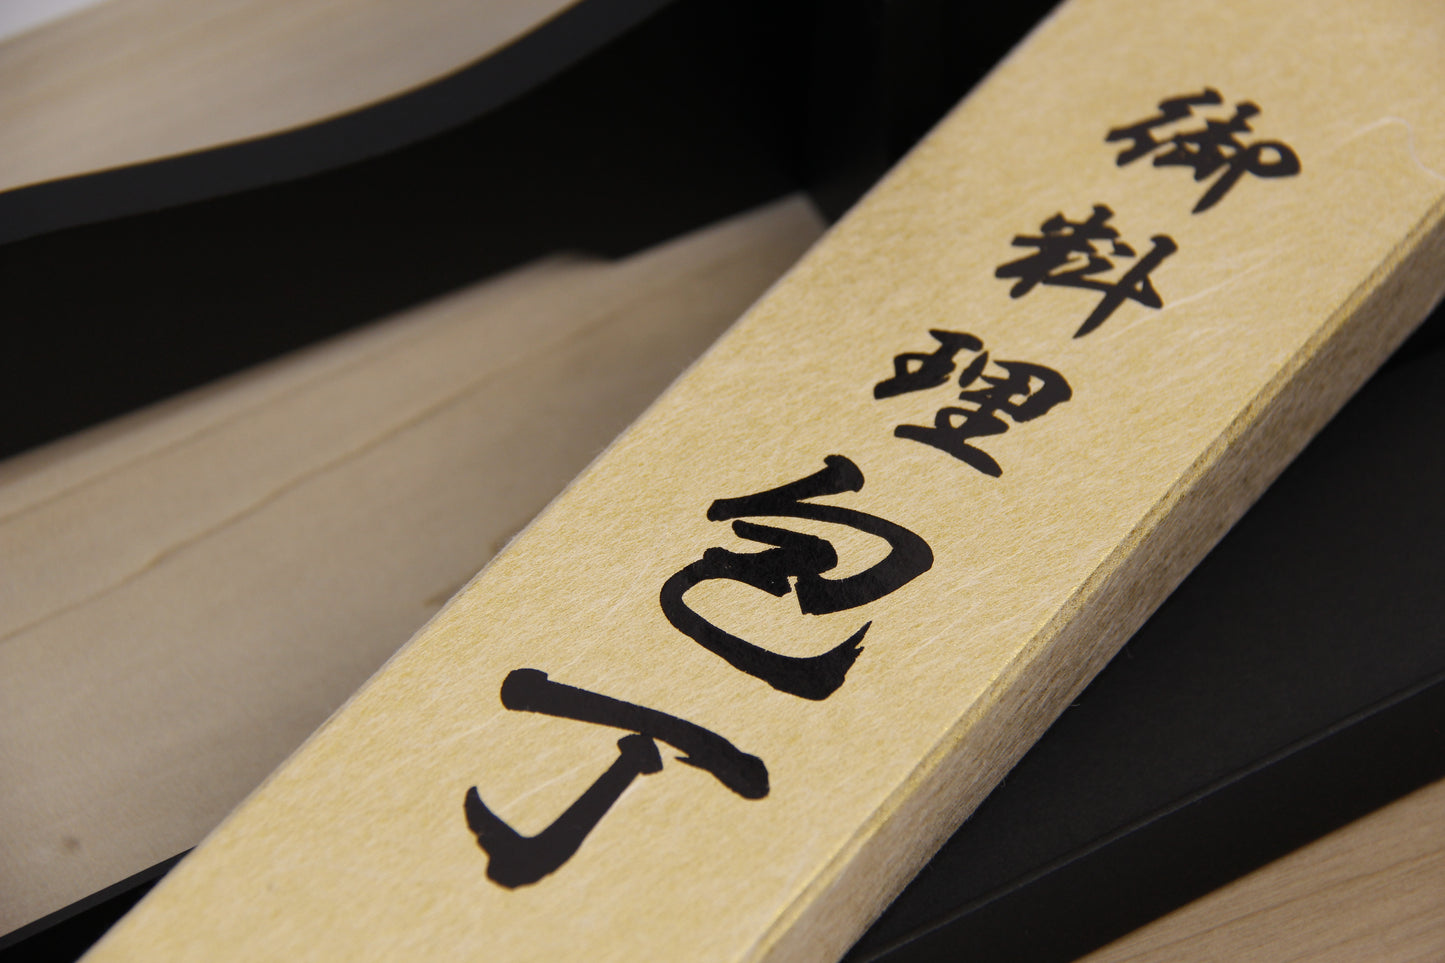 御料理包丁